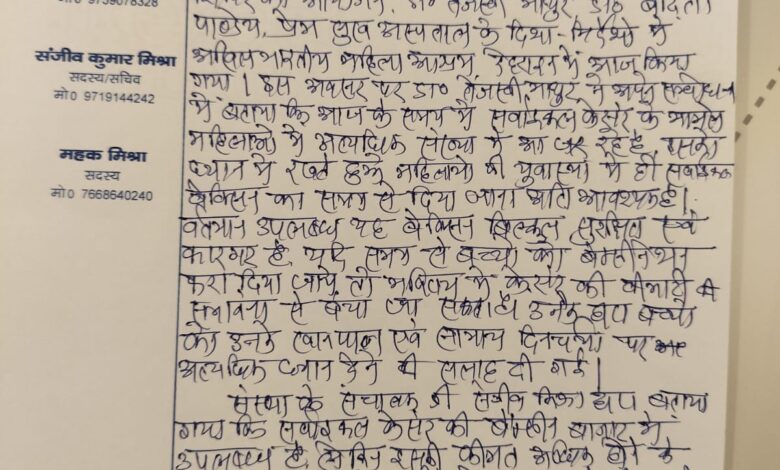 मो0 9759078328
संजीव कुमार मिश्रा
सदस्य/सचिव
मो0 9719144242
महक मिश्रा
सदस्य
मो0 7668640240
पाण्डेय, प्रेम सुख अस्पताल के दिशा-निर्देशो में
अखिल भारतीय महिला आश्रम देहरादून में आज किया
गया। इस अवसर पर डा० तेजस्वी माथुर ने अपने सम्बोधन
में बताया कि आज के समय में सर्वाइकल केंसर के मामले
महिलाओ में अत्यधिक संख्या में आ रहे है, इसको
ध्यान में रखते हुये महिलाओ की युवावस्था में ही सर्वाइकल
वैक्सिन का समय से दिया जाना अति आवश्यक है।
वर्तमान उपलब्ध यह वेक्सिन बिल्कुल सुरक्षित एवं
कारगर है, यदि समय से बच्चो को
करा दिया जाये तो भविष्य में केंसर की बीमारी
सम्भावना से बचा जा सकता है उनके द्वारा बच्चो
को उनके खानपान एवं सामान्य दिनचर्या पर
अत्यधिक ध्यान देने की सलाह दी गई।
संस्था के संचालक श्री संजीव मिश्रा द्वारा बताया
गया कि सर्वाइकल केंसर की वैक्सीन बाजार में
उपलब्ध है, लेकिन इसकी कीमत अधिक होने के